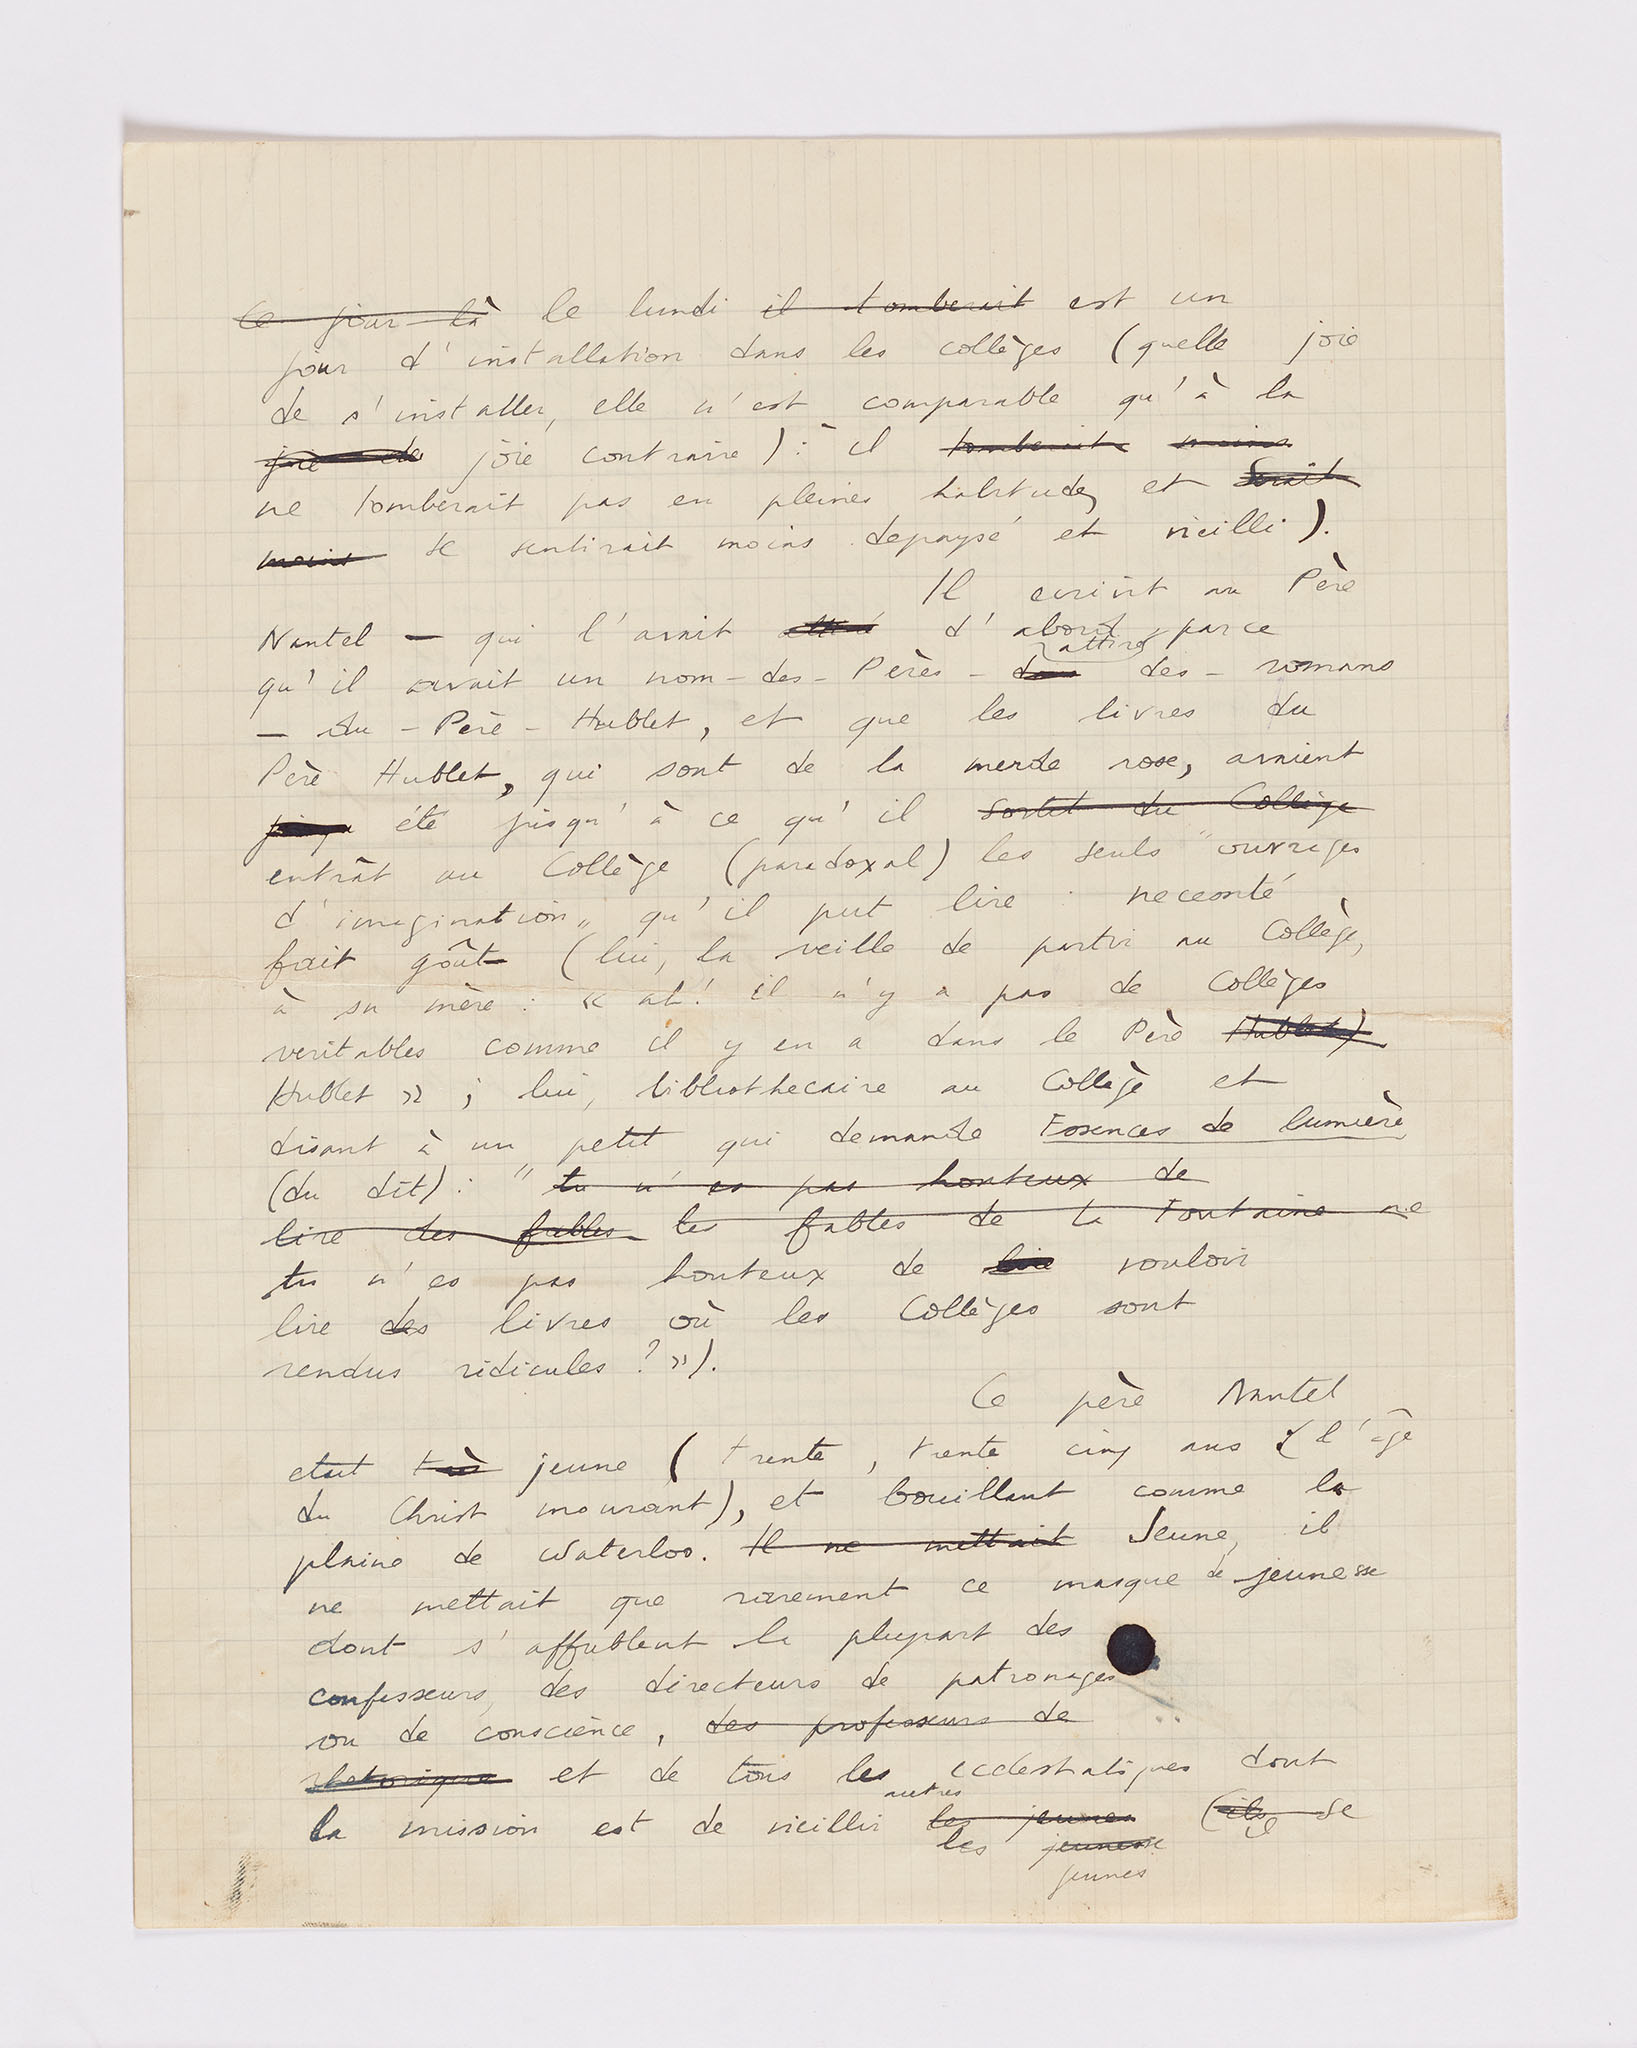 Ce jour-là le lundi il tomberait est un
jour d'installation dans les collèges (quelle joie
de s'installer, elle n'est comparable qu'à la
joie de joie contraire) : il tomberait moins
ne tomberait pas en pleines habitudes et serait
moins se sentirait moins depaysé et vieilli).
Il écrivit au Père
Nantel — qui l'avait attiré d'abord parce
attiré
qu'il avait un nom-des-Pères-des-romans
-du-Père-Hublet, et que les livres du
Père Hublet, qui sont de la merde rose, avaient
été jusqu'à ce qu'il sortit du Collège
entrât au Collège (paradoxal) les seuls "ouvrages
d'imagination„ qu'il put lire : necessité
fait goût (lui, la veille de partir au Collège,
à sa mère : « ah! il n'y a pas de Collèges
veritables comme il y en a dans le Père Hublet)
Hublet » ; lui, bibliothecaire au Collège et
disant à un petit qui demande Essences de lumière
(du dit) : " tu n'es pas honteux de
lire des fables les fables de La Fontaine ne
tu n'es pas honteux de lire vouloir
lire des livres où les Collèges sont
rendus ridicules ? »).
Ce père Nantel
etait très jeune (trente, trente cinq ans l'âge
du Christ mourant), et bouillant comme la
plaine de Waterloo. Il ne mettait Jeune, il
ne mettait que rarement ce masque de jeunesse
dont s'affublent la plupart des
confesseurs, des directeurs de patronages
ou de conscience, des professeurs de
rhetorique et de tous les ecclesiatiques dont
autres
la mission est de vieillir les jeunes (ils se
les jeunesse
jeunes